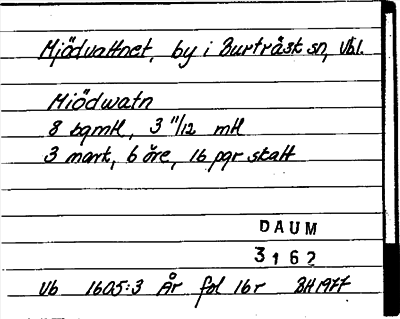 Mjödvattnet, by i Burträsk sn, Vbl.
Miödwatn
8 bgmtl, 3 11/12 mtl
3 mark, 6 öre, 16 pgr skatt
DAUM
3162
Vb 1605:3 År fol 16r BH 1977